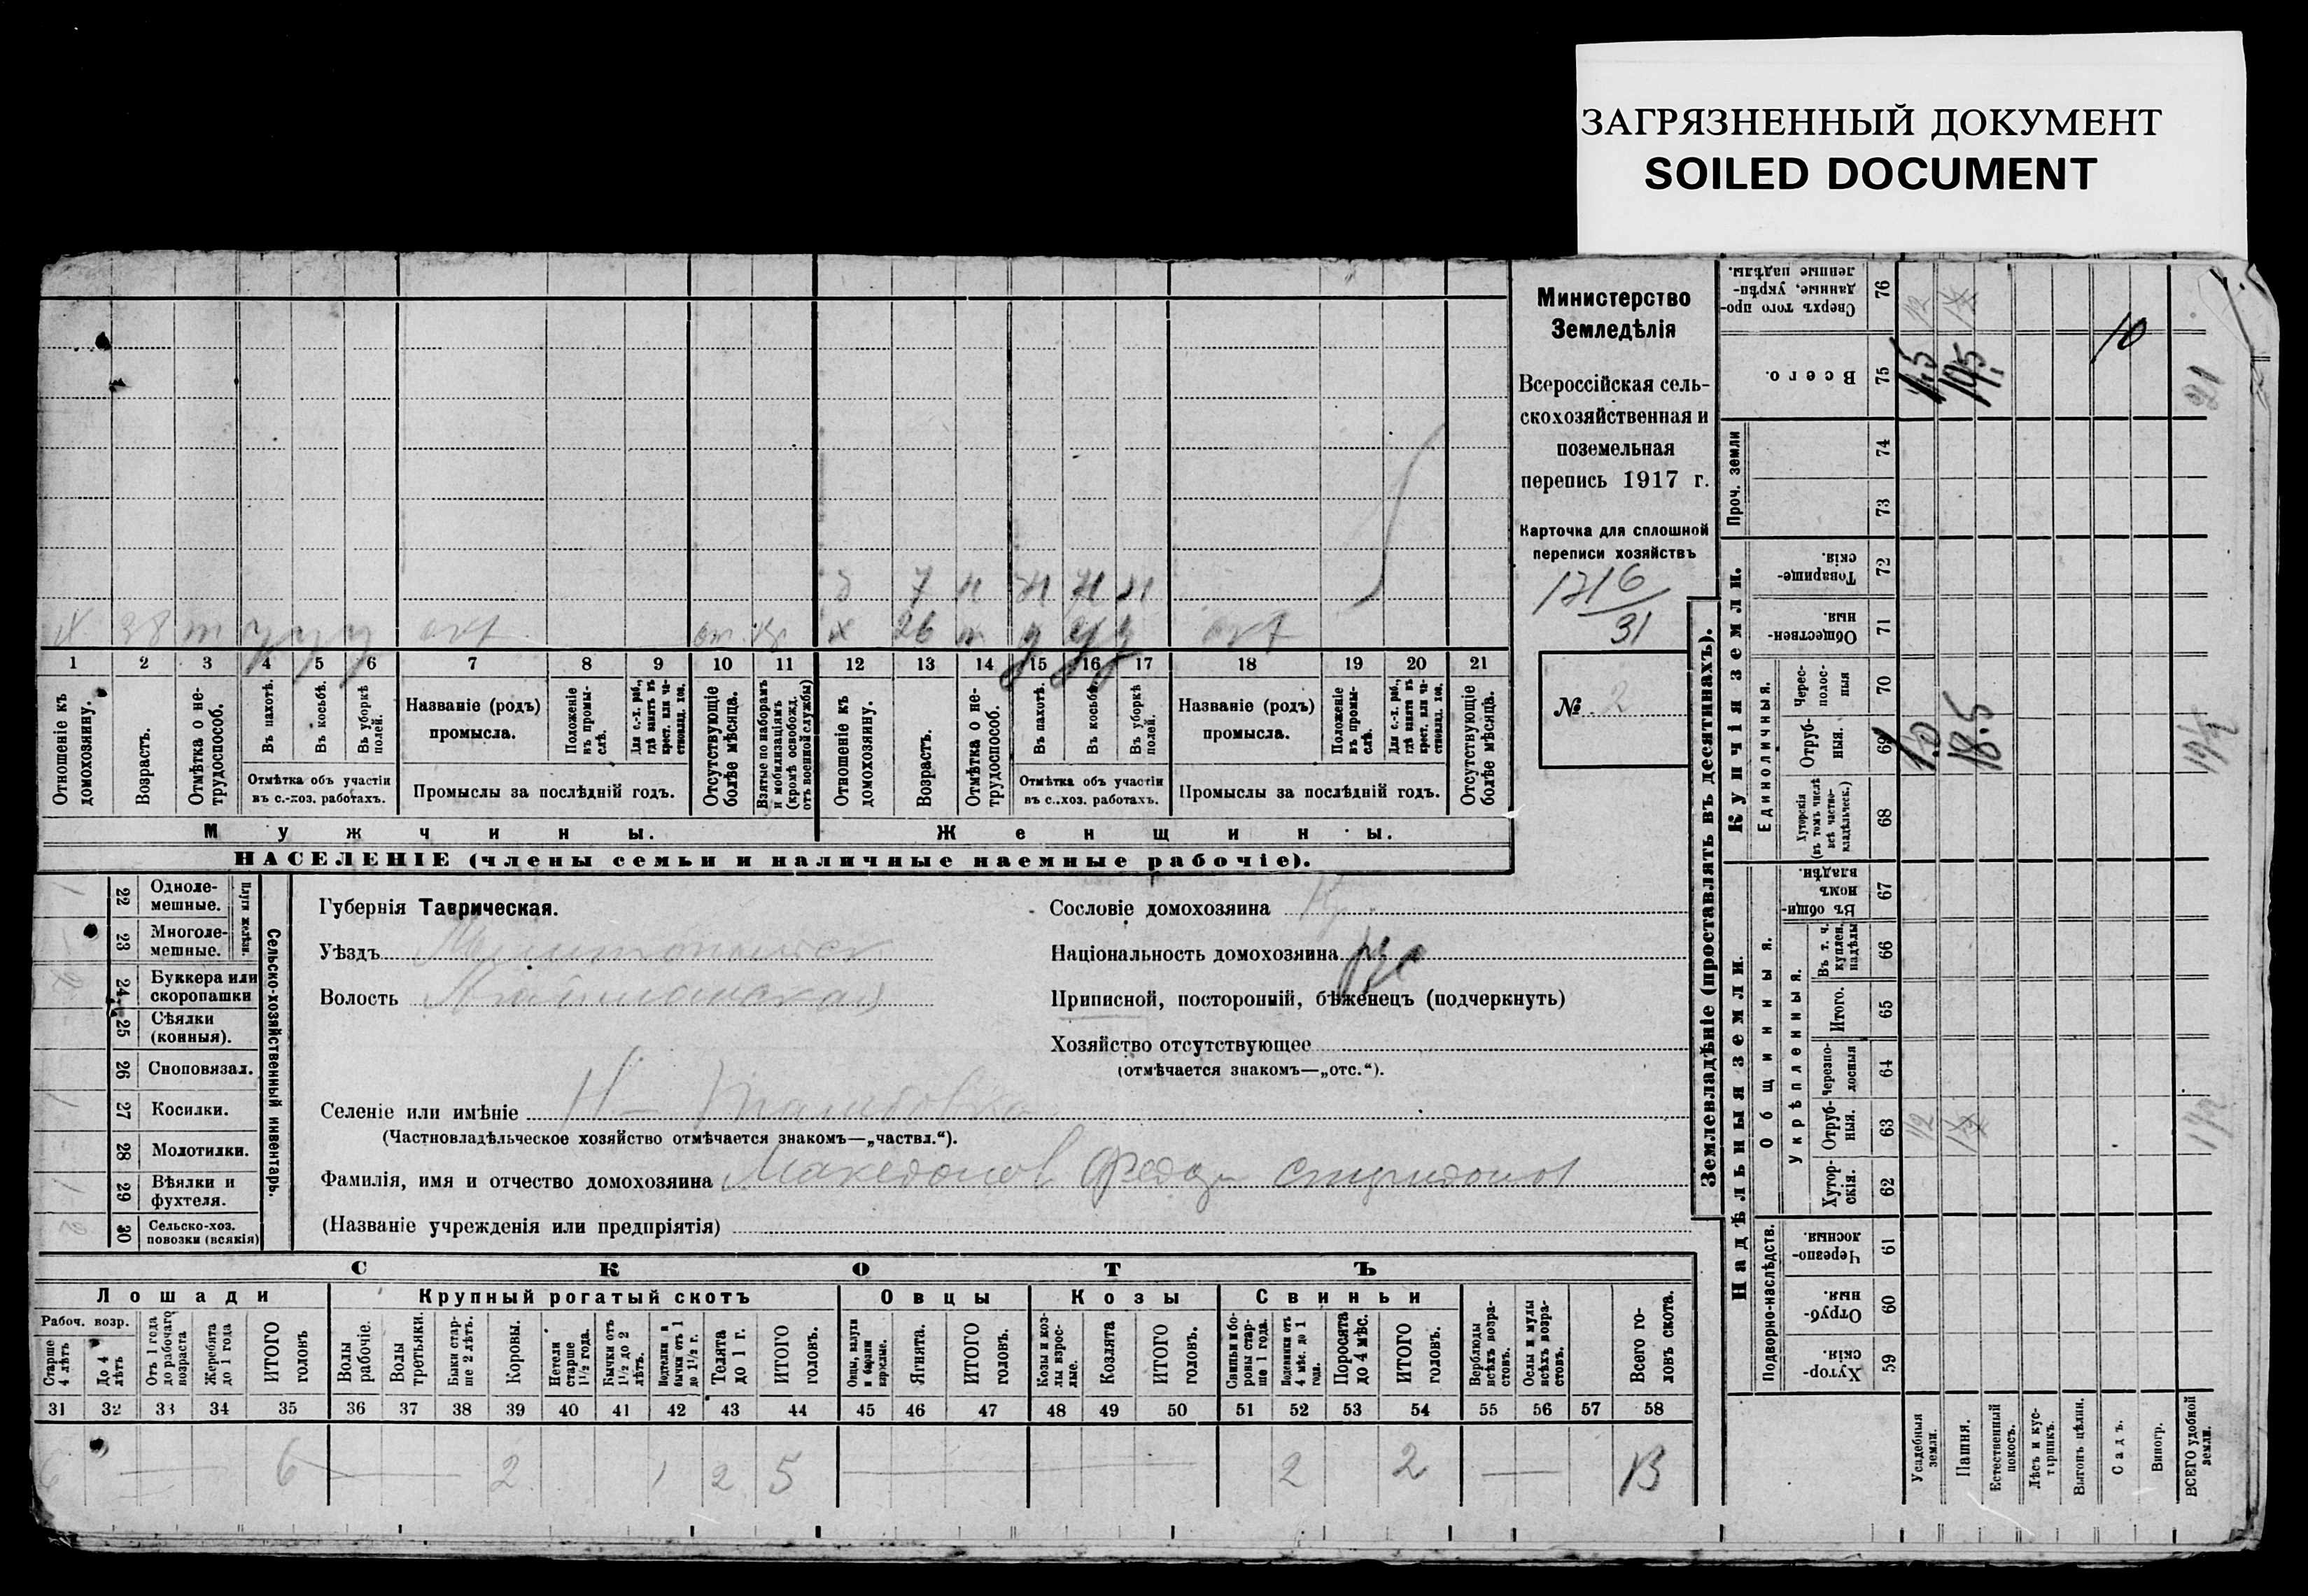 ЗАГРЯЗНЕННЫЙ ДОКУМЕНТ
SOILED DOCUMENT
Министерство
Земледѣлія
Всероссійская сель-
скохозяйственная и
поземельная
перепись 1917 г.
Карточка для сплошной
переписи хозяйствъ
1716/31
№ 2
д 7 н н н н
х 38 т у у у окт
х 26 д у д
1 2 3 4 5 6 7 8 9 10 11 12 13 14 15 16 17 18 19 20 21
Отношеніе къ домохозяину.
Возрастъ.
Отмѣтка о не-трудоспособ.
Въ пахотѣ.
Въ косьбѣ.
Въ уборкѣ полей.
Отмѣтка объ участіи въ с.-хоз. работахъ.
Названіе (родъ) промысла.
Положеніе въ промы-слѣ.
Для с.-х. раб., гдѣ занятъ въ крест. или ча-стновлад. хоз.
Промыслы за послѣдній годъ.
Отсутствующіе болѣе мѣсяца.
Взятые по наборамъ и мобилизаціямъ (кромѣ освобожд. отъ военной службы)
Отношеніе къ домохозяину.
Возрастъ.
Отмѣтка о не-трудоспособ.
Въ пахотѣ.
Въ косьбѣ.
Въ уборкѣ полей.
Отмѣтка объ участіи въ с.-хоз. работахъ.
Названіе (родъ) промысла.
Положеніе въ промы-слѣ.
Для с.-х. раб., гдѣ занята въ крест. или ча-стновлад. хоз.
Промыслы за послѣдній годъ.
Отсутствующіе болѣе мѣсяца.
Мужчины. Женщины.
НАСЕЛЕНІЕ (члены семьи и наличные наемные рабочіе).
Сельско-хозяйственный инвентарь.
Плуги желѣзн.
1 22 Одноле-мешные.
23 Многоле-мешные.
2 24 Буккера или скоропашки
25 Сѣялки (конныя).
26 Сноповязал.
1 27 Косилки.
28 Молотилки.
1 29 Вѣялки и фухтеля.
2 30 Сельско-хоз. повозки (всякія)
Губернія Таврическая.
Уѣздъ Мелитопольск
Волость
Селеніе или имѣніе Н-
(Частновладѣльческое хозяйство отмѣчается знакомъ—„частвл.“).
Фамилія, имя и отчество домохозяина Македонов Федор Спиридонов
(Названіе учрежденія или предпріятія)
Сословіе домохозяина Кр.
Національность домохозяина рус
Приписной, посторонній, бѣженецъ (подчеркнуть)
Хозяйство отсутствующее
(отмѣчается знакомъ—„отс.“).
СКОТЪ
Лошади Крупный рогатый скотъ Овцы Козы Свиньи
Рабоч. возр.
Старше 4 лѣтъ
До 4 лѣтъ
Отъ 1 года до рабочаго возраста
Жеребята до 1 года
ИТОГО головъ
Волы рабочіе.
Волы третьяки.
Быки стар-ше 2 лѣтъ.
Коровы.
Нетели старше 1½ года.
Бычки отъ 1½ до 2 лѣтъ.
Нетелки и бычки отъ 1 до 1½ г.
Телята до 1 г.
ИТОГО головъ.
Овцы, валухи и бараны взрослые.
Ягнята.
ИТОГО головъ.
Козы и коз-лы взрос-лые.
Козлята
ИТОГО головъ.
Свиньи и бо-ровы стар-ше 1 года.
Подсвинки отъ 4 мѣс. до 1 года.
Поросята до 4 мѣс.
ИТОГО головъ.
Верблюды всѣхъ возра-стовъ.
Ослы и мулы всѣхъ возра-стовъ.
Всего го-ловъ скота.
31 32 33 34 35 36 37 38 39 40 41 42 43 44 45 46 47 48 49 50 51 52 53 54 55 56 57 58
6 — 6 — 2 1 2 5 — 2 2 — 13
Землевладѣніе (проставлять въ десятинахъ).
Надѣльныя земли. Купчія земли. Проч. земли
Подворно-наслѣдств.
Общинныя.
Укрѣпленныя.
Единоличныя.
Сверхъ того про-данные, укрѣп-ленные надѣлы. 76
Всего. 75 1.5 10
74
73
Товарище-скія. 72
Обществен-ныя 71
Черес-полос-ныя 70
Отруб-ныя. 69 18.5
Хуторскія (въ томъ числѣ всѣ частно-владѣльческ.) 68
Въ общи-номъ владѣн. 67
Въ т. ч. куплен. надѣлы 66
Итого. 65
Черезпо-лосныя 64
Отруб-ныя. 63
Хутор-скія. 62
Черезпо-лосныя. 61
Отруб-ныя. 60
Хутор-скія. 59
Усадебныя земли.
Пашня.
Естественный покосъ.
Лѣсъ и кус-тарникъ.
Выгонъ цѣлин.
Садъ.
Виногр.
ВСЕГО удобной земли.